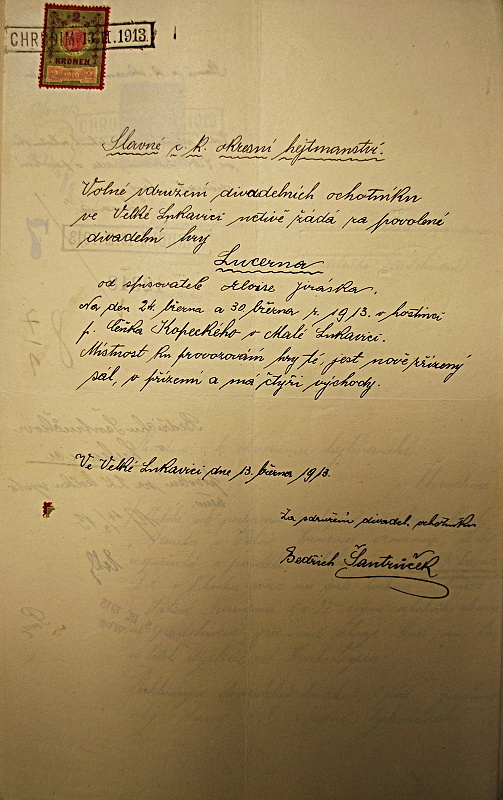 2
CHRUDIM 13.III.1913.
KRONEN
2 1910 2
Slavné c. k. okresní hejtmanství.
Volné sdružení divadelních ochotníků
ve Velké Lukavici uctivě žádá za povolení
divadelní hry
Lucerna
od spisovatele Aloise Jiráska.
Na den 24. března a 30 března r. 1913. v hostinci
p. Čeňka Kopeckého v Malé Lukavici.
Místnost ku provozování hry té, jest nově zřízený
sál, v přízemí a má čtyři východy.
Ve Velké Lukavici dne 13. března 1913.
Za sdružení divadel. ochotníků
Bedřich Šantrůček